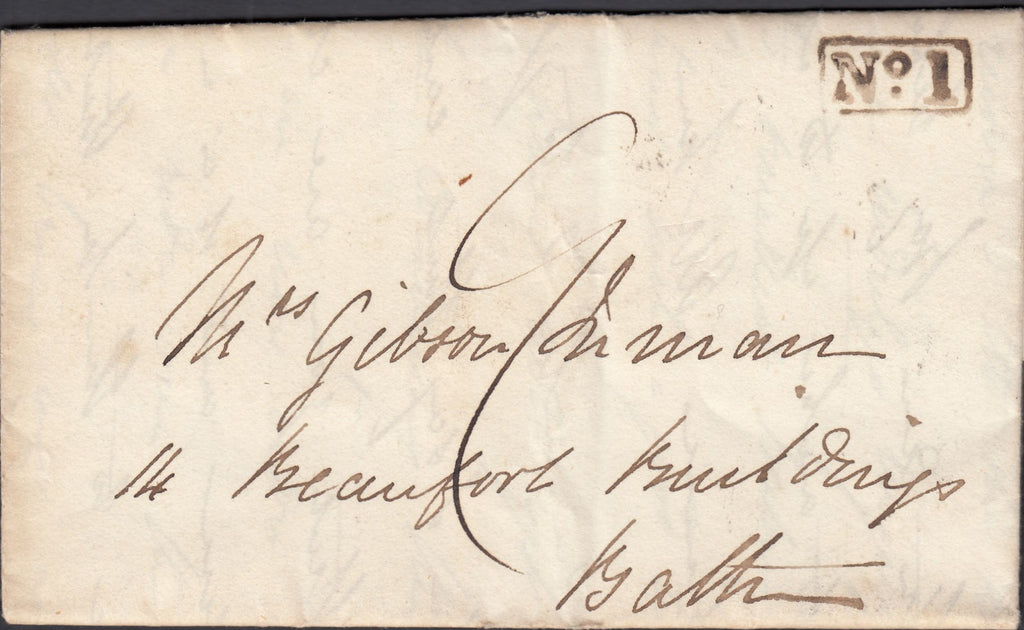 No. 1
Mrs Gibson Inman
14 Beaufort Buildings
Bath